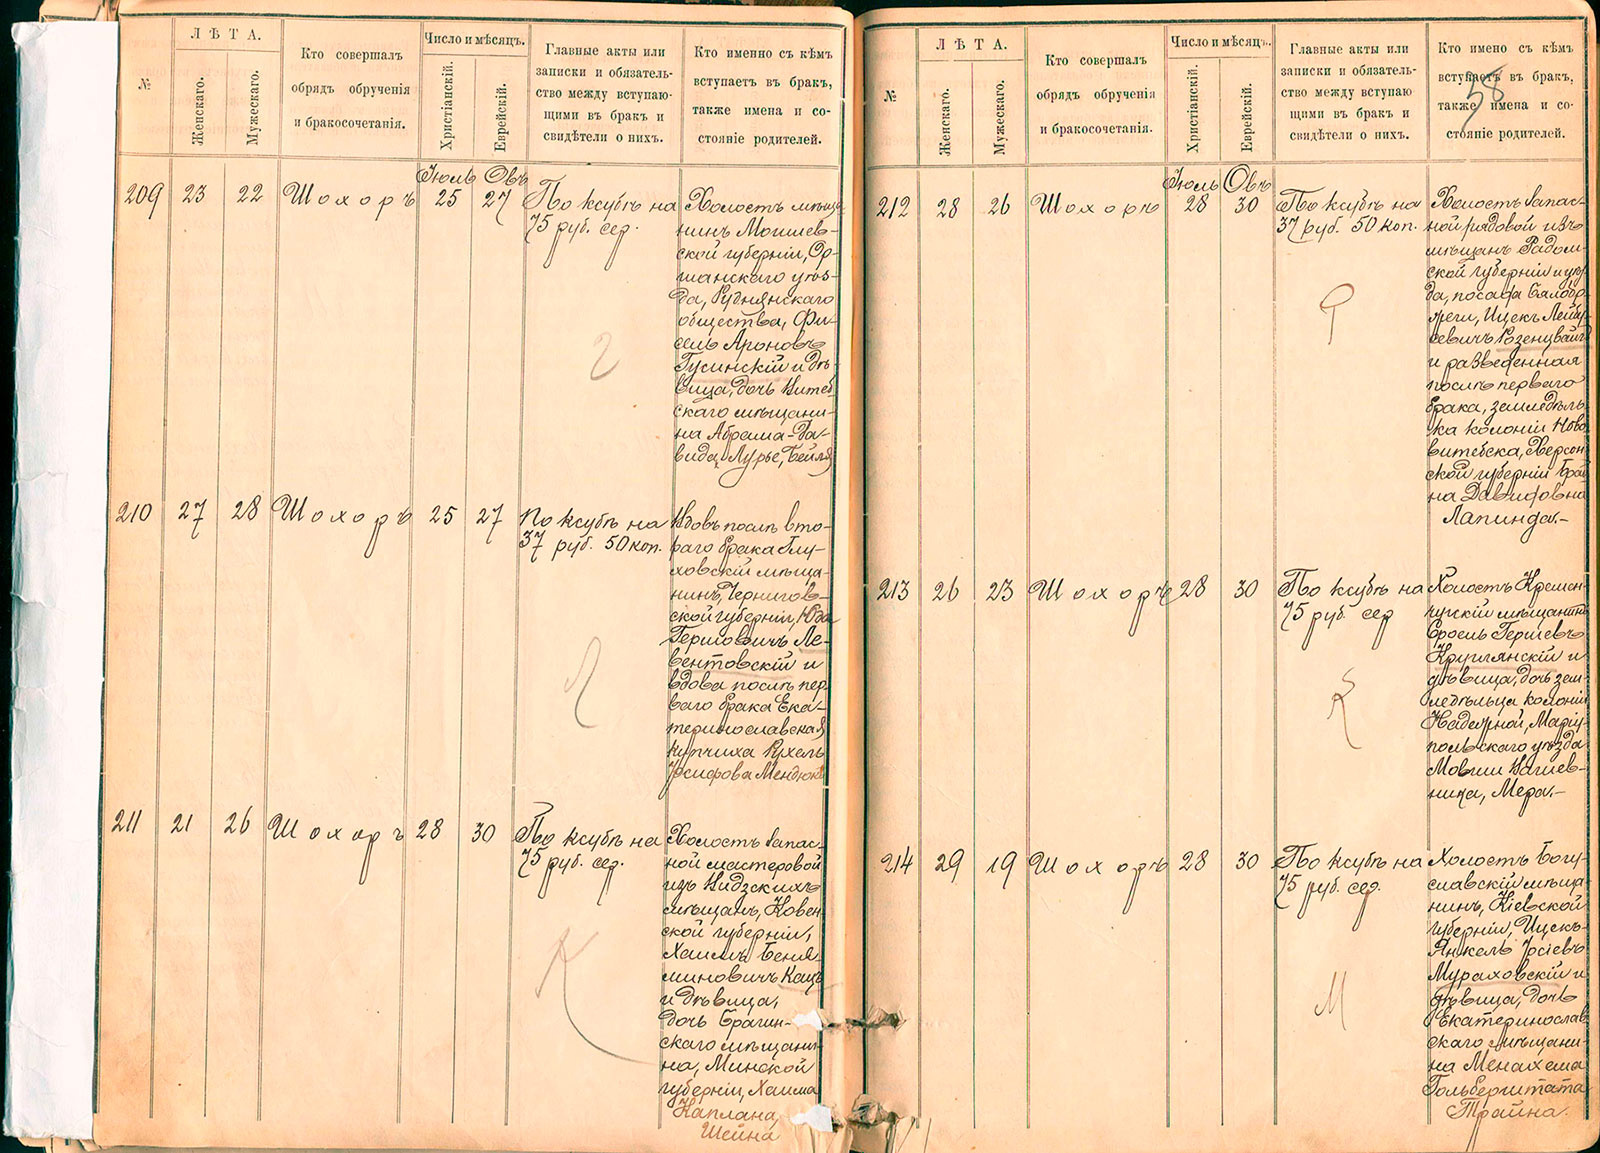 №
ЛѢТА.
Женскаго.
Мужескаго.
Кто совершалъ
обрядъ обрученія
и бракосочетанія.
Число и мѣсяцъ.
Христіанскій.
Еврейскій.
Главные акты или
записки и обязатель-
ство между вступаю-
щими въ бракъ и
свидѣтели о нихъ.
Кто именно съ кѣмъ
вступаетъ въ бракъ,
также имена и со-
стояніе родителей.
209
23
22
Шохоръ
Іюль
25
Овъ
27
По ксубѣ на
75 руб. сер.
Холостъ мѣща-
нинъ Могилев-
ской губерніи, Ор-
шанскаго уѣз-
да, Руднянскаго
общества, Фи-
сель Ароновъ
Гусинскій и дѣ-
вица, дочь Витеб-
скаго мѣщани-
на Абрама-Да-
вида Лурье, Бейля
Г
210
27
28
Шохоръ
25
27
По ксубѣ на
37 руб. 50 коп.
Вдовъ послѣ вто-
раго брака Глу-
ховскій мѣща-
нинъ, Чернигов-
ской губерніи, Юда
Гершовичъ Ле-
вентовскій и
вдова послѣ пер-
ваго брака Ека-
теринославская
купчиха Рухель
Іосифова Мендюкъ
Л
211
21
26
Шохоръ
28
30
По ксубѣ на
75 руб. сер.
Холостъ запас-
ной мастеровой
изъ Видзскихъ
мѣщанъ, Ковен-
ской губерніи,
Хаимъ Бенья-
миновичъ Кацъ
и дѣвица,
дочь Брагин-
скаго мѣщани-
на, Минской
губерніи, Хаима
Каплана,
Шейна
К
№
ЛѢТА.
Женскаго.
Мужескаго.
Кто совершалъ
обрядъ обрученія
и бракосочетанія.
Число и мѣсяцъ.
Христіанскій.
Еврейскій.
Главные акты или
записки и обязатель-
ство между вступаю
щими въ бракъ и
свидѣтели о нихъ.
Кто имено съ кѣмъ
вступаетъ въ бракъ,
также имена и со-
стояніе родителей.
58
212
28
26
Шохоръ
Іюль
28
Овъ
30
По ксубѣ на
37 руб. 50 коп.
Холостъ запас-
ной рядовой изъ
мѣщанъ Радом-
ской губерніи и уѣз-
да, посада Бялобр-
жеги, Ицекъ Лейзе-
ровичъ Розенцвайгъ
и разведенная
послѣ перваго
брака, земледѣль-
ка колоніи Ново
витебска, Херсон-
ской губерніи Брай-
на Давидовна
Лапинда.-
Р
213
26
23
Шохоръ
28
30
По ксубѣ на
75 руб. сер
Холостъ Кремен-
чугскій мѣщанинъ
Сроель Гершевъ
Круглянскій и
дѣвица, дочь зем-
ледѣльца колоніи
Надежной, Маріу-
польскаго уѣзда
Мовши
Мера.-
К
214
29
19
Шохоръ
28
30
По ксубѣ на
75 руб. сер.
Холостъ Богу-
славскій мѣща-
нинъ, Кіевской
губерніи, Ицекъ-
Янкель Іосіевъ
Мураховскій и
дѣвица, дочь
Екатеринослав-
скаго мѣщани-
на Менахема
Гольдерштата
Трайна.
М